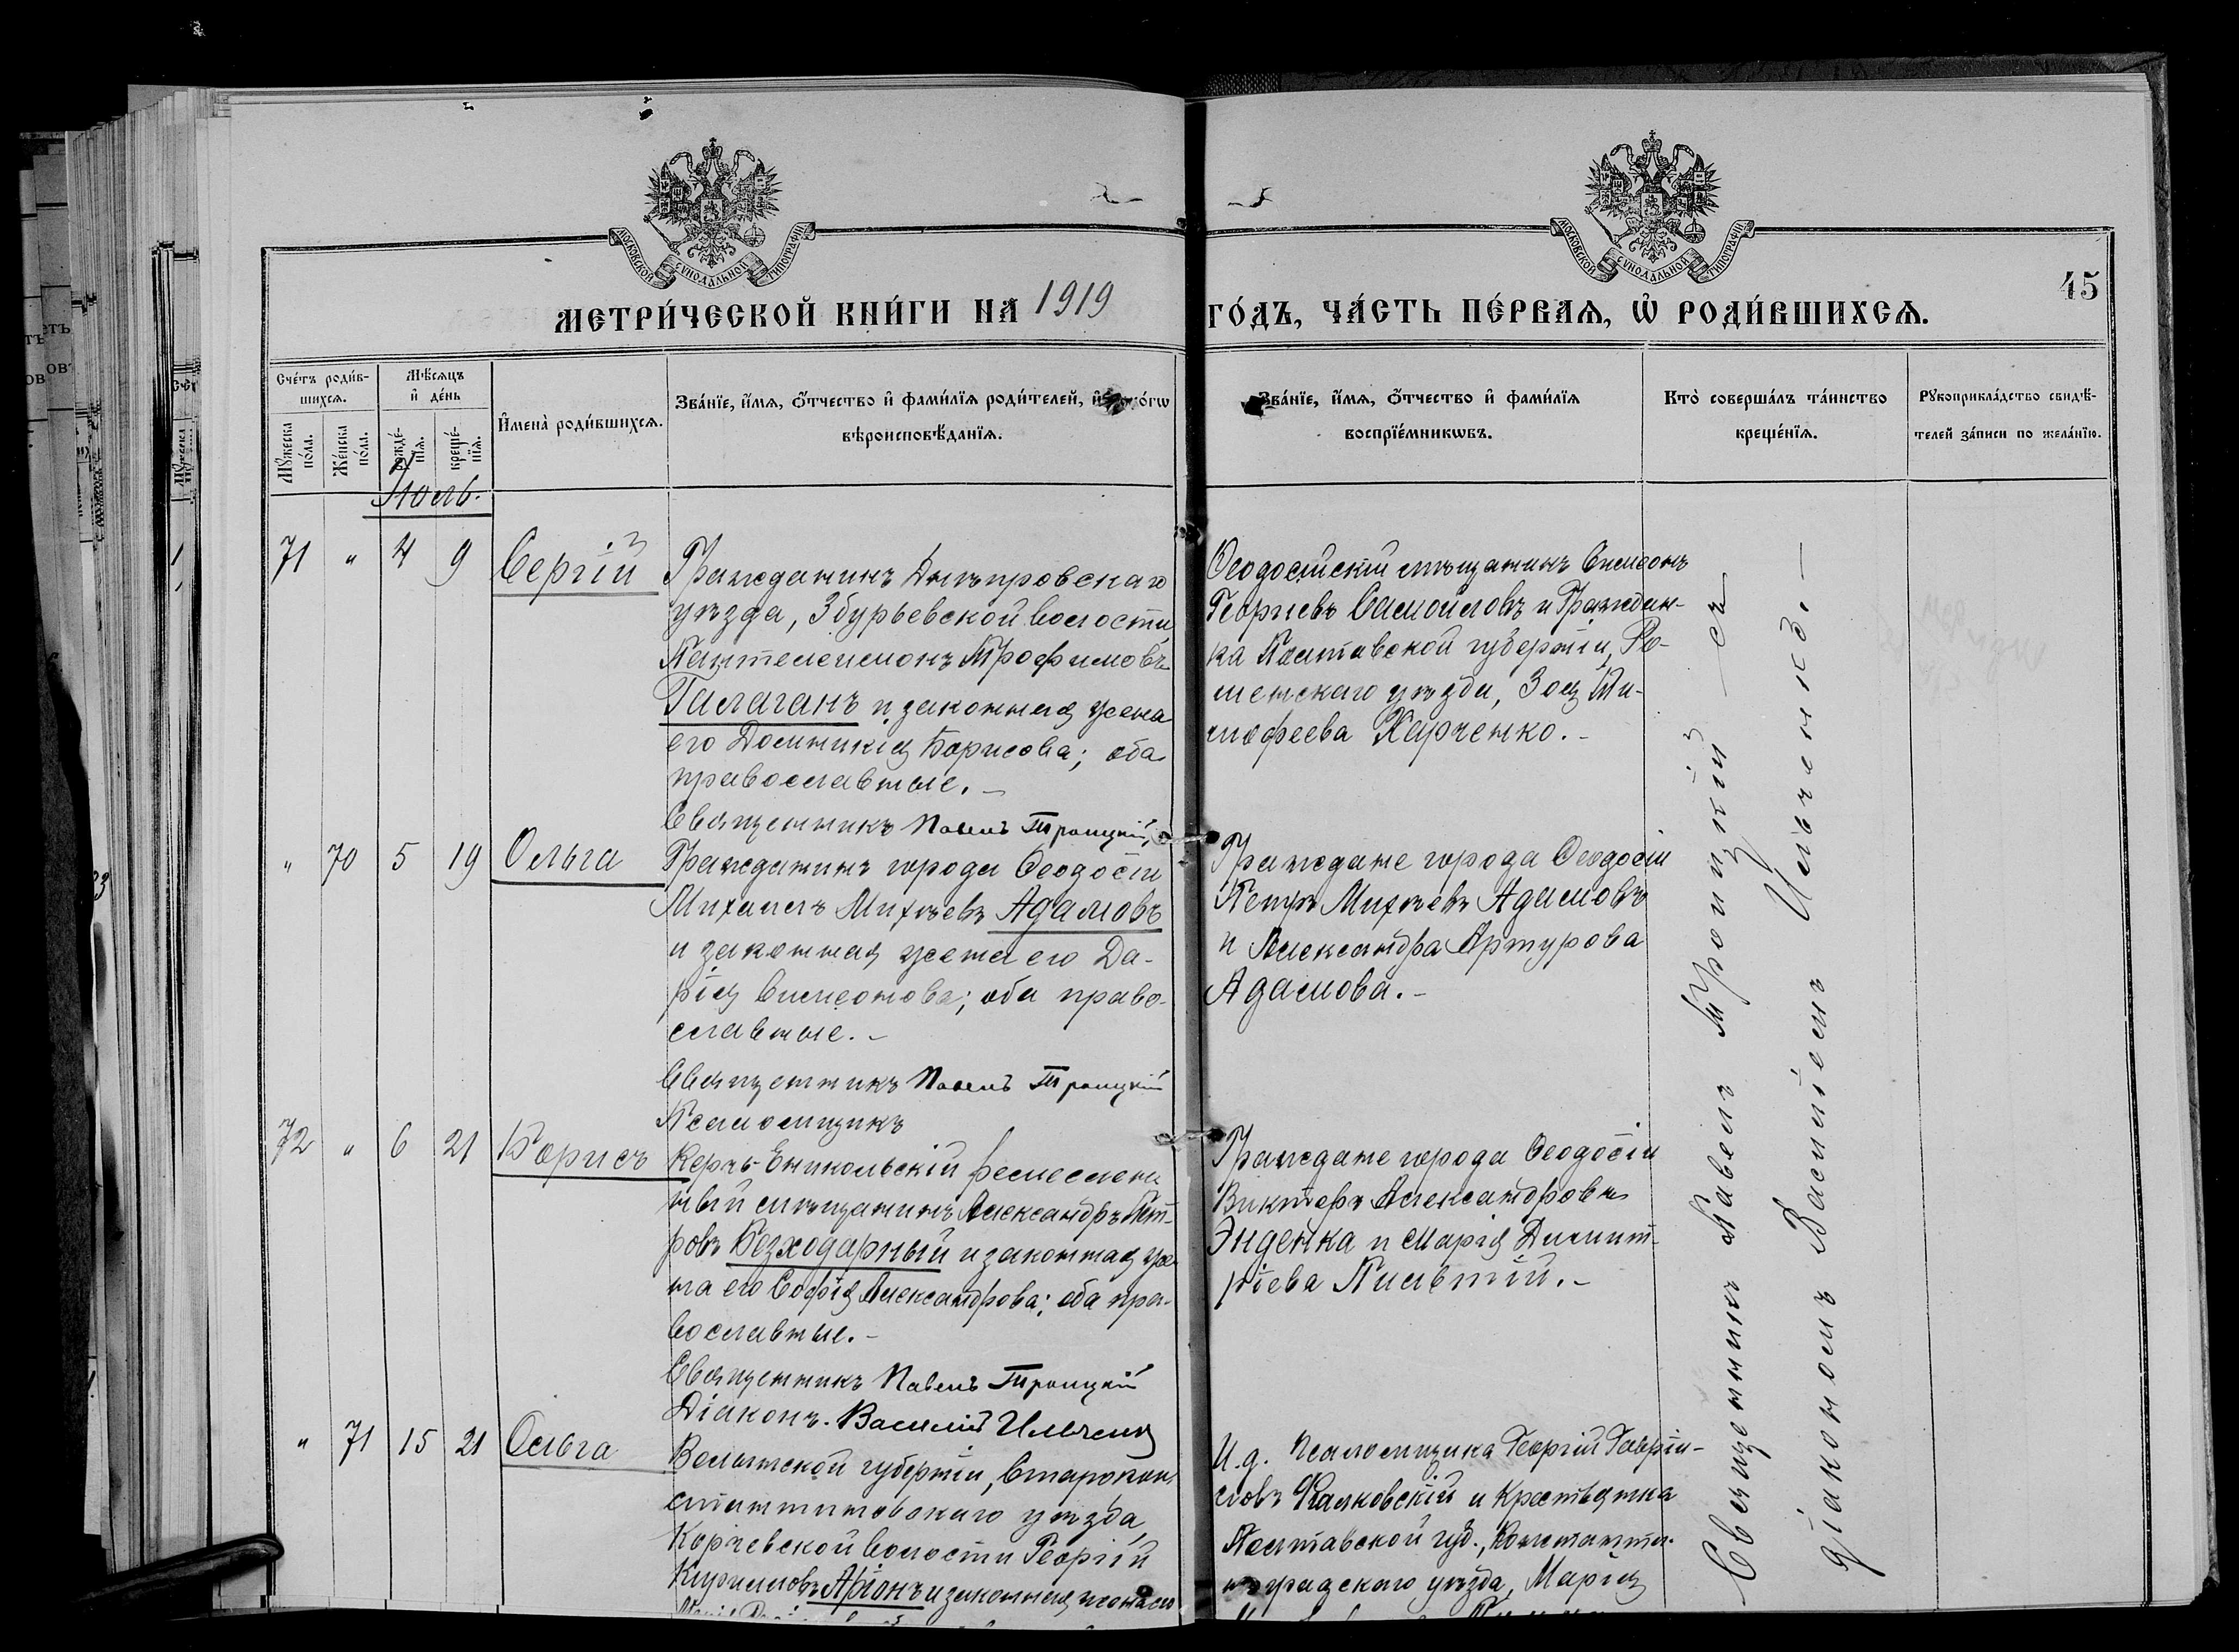 МОСКОВСКОЙ СѴНОДАЛЬНОЙ ТИПОГРАФІИ
МОСКОВСКОЙ СѴНОДАЛЬНОЙ ТИПОГРАФІИ
45
МЕТРИ́ЧЕСКОЙ КНИ́ГИ НА 1919 ГО́ДЪ, ЧА́СТЬ ПЕ́РВАѦ, Ѡ҆ РОДИ́ВШИХСѦ.
Сче́тъ роди́в-
шихсѧ.
Мꙋ́жеска по́ла.
Же́нска по́ла.
Мѣ́сѧцъ
и҆ де́нь
рожде́-
нїѧ.
креще́-
нїѧ.
И҆мена̀ роди́вшихсѧ.
Зва́нїе, и҆́мѧ, ѻ҆́тчество и҆ фами́лїѧ роди́телей, и҆
вѣроисповѣ́данїѧ.
Зва́нїе, и҆́мѧ, ѻ҆́тчество и҆ фами́лїѧ
воспрїе́мникѡвъ.
Кто̀ соверша́лъ та́инство
креще́нїѧ.
Рꙋкоприкла́дство свидѣ́-
телей за́писи по жела́нїю.
Іюль.
71 " 4 9 Сергій
Гражданинъ Днѣпровскаго
уѣзда, Збурьевской волости
Пантелеимонъ Трофимовъ
Галаганъ и законная жена
его Домникія Борисова; оба
православные. –
Священникъ Павелъ Троицкій
Ѳеодосійскій мѣщанинъ Симеонъ
Георгіевъ Самойловъ и Граждан-
ка Полтавской губерніи, Ро-
менскаго уѣзда, Зоя Ти-
мофеева Харченко. –
" 70 5 19 Ольга
Гражданинъ города Ѳеодосіи
Михаилъ Михѣевъ Адамовъ
и законная жена его Да-
рія Симеонова; оба право-
славные. –
Священникъ Павелъ Троицкій
Псаломщикъ
Граждане города Ѳеодосіи
Петръ Михѣевъ Адамовъ
и Александра Артурова
Адамова. –
72 " 6 21 Борисъ
Керчь-Еникольскій ремеслен
ный мѣщанинъ Александръ Пет-
ровъ Безходарный и законная же
на его Софія Александрова; оба пра-
вославные. –
Священникъ Павелъ Троицкій
Діаконъ Василій Ильченко
Граждане города Ѳеодосіи
Викторъ Александровъ
Энденка и Марія Димит-
ріева
" 71 15 21 Ольга
Волынской губерніи, Старокон
стантиновскаго уѣзда,
Корчевской волости Георгій
Кирилловъ Аріонъ и законная жена его
И. д. Псаломщика Георгій Гавріи-
ловъ и Крестьянка
Полтавской губ., Константи-
ноградскаго уѣзда, Марія
Священникъ Павелъ Троицкій съ
діакономъ Василіемъ Ильченко. –